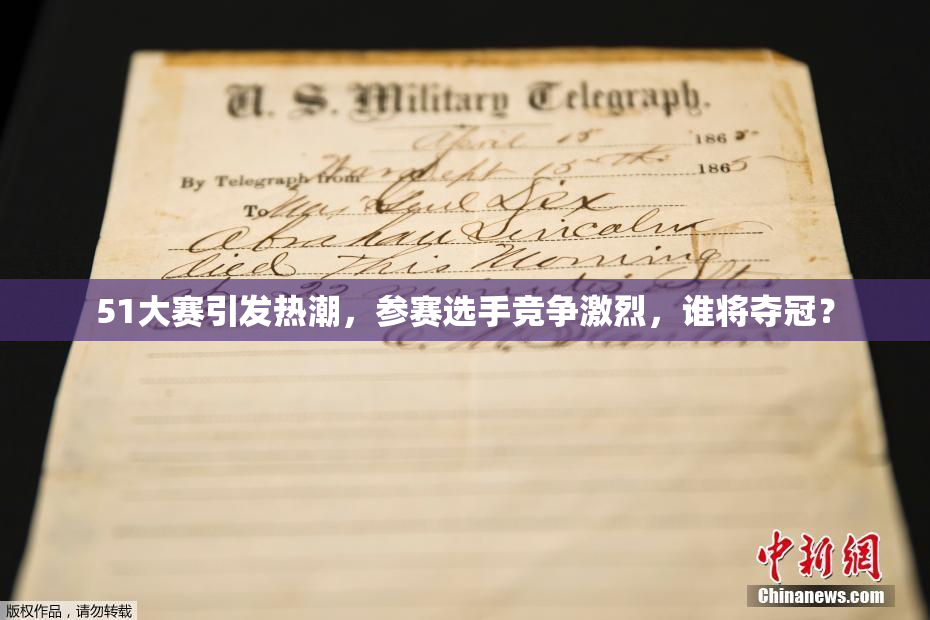 U. S. Military Telegraph.
April 15 1865
By Telegraph from War Dept 15th 1865
To Maj Genl Dix
Abraham Lincoln
died This Morning
22 minutes after
51大赛引发热潮，参赛选手竞争激烈，谁将夺冠？
E. M. Stanton
中新网
Chinanews.com
版权作品，请勿转载